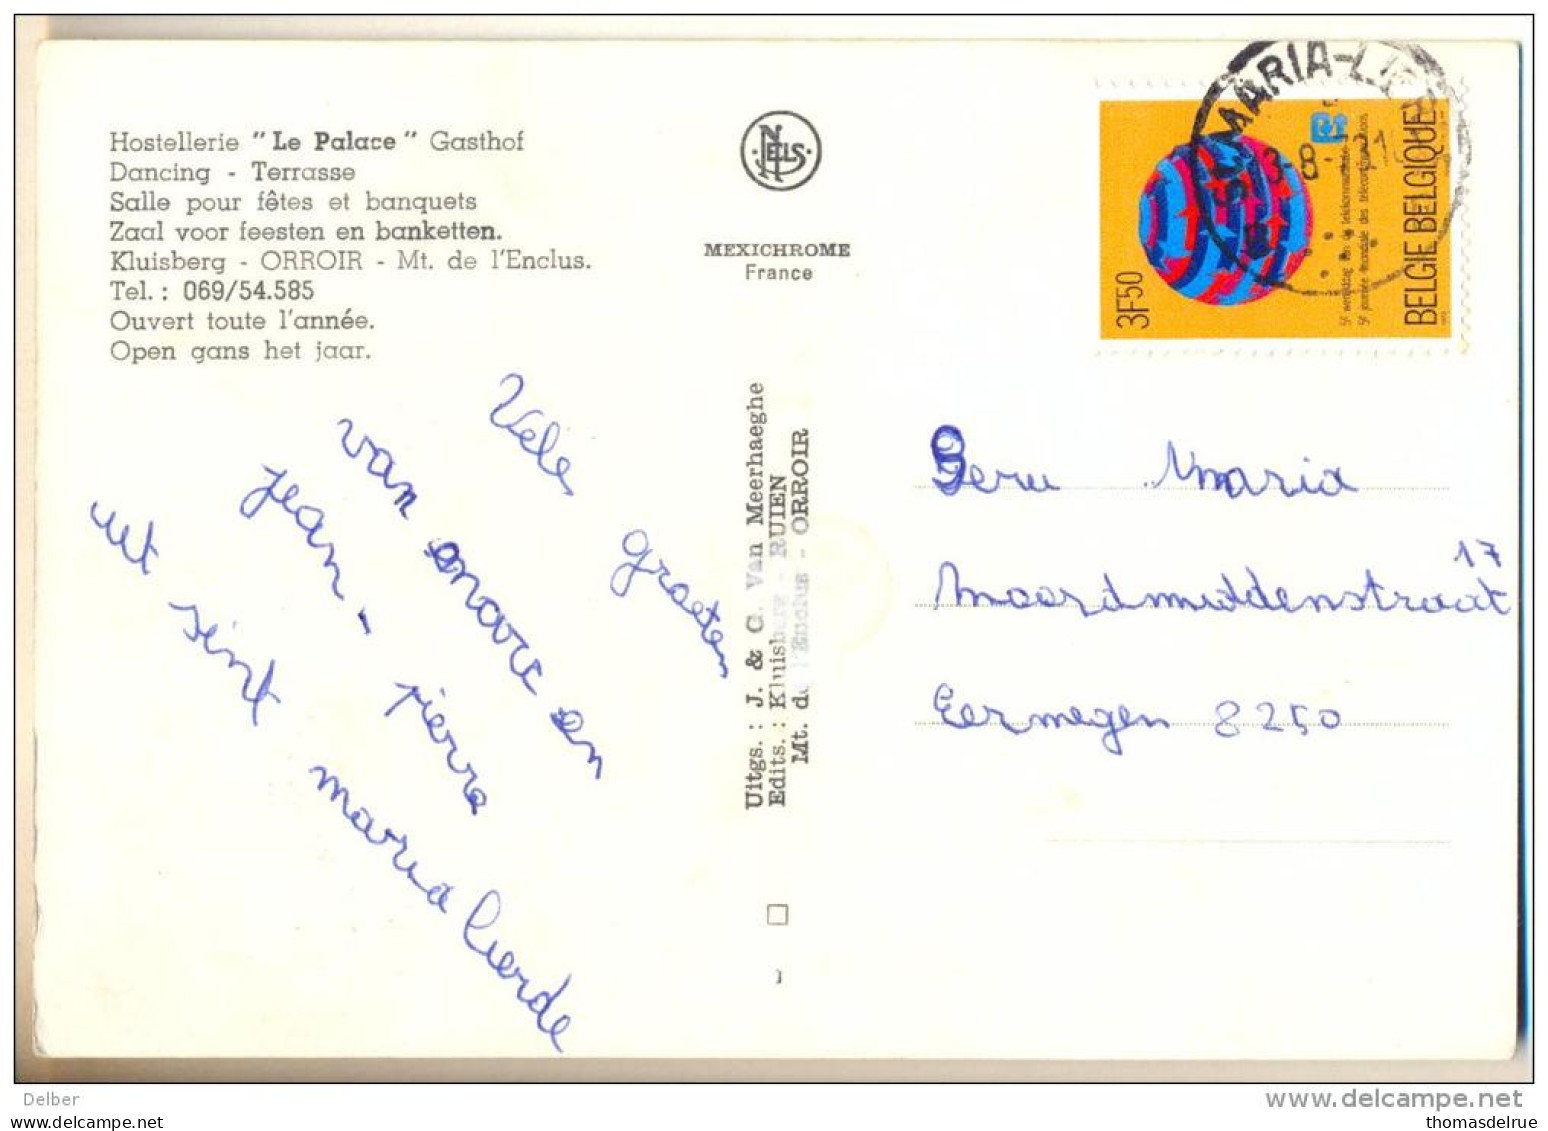 Hostellerie "Le Palace" Gasthof
Dancing - Terrasse
Salle pour fêtes et banquets
Zaal voor feesten en banketten.
Kluisberg - ORROIR - Mt. de l'Enclus.
Tel. : 069/54.585
Ouvert toute l'année.
Open gans het jaar.
NELS
MEXICHROME
France
Uitgs. : J. & G. Van Meerhaeghe
Edits. : Kluisberg - RUIEN
Mt. de l'Enclus - ORROIR
3F50
5e werelddag van de telekommunikatie
5e journée mondiale des télécommunications
BELGIE BELGIQUE
MARIA-LI
Vele graeten
van marc en
jean - pierre
uit sint maria lierde
Maria
17
Noordmuldenstraat
Eernegen 8250
Delber
www.delcampe.net
mytour
thomasdelrue